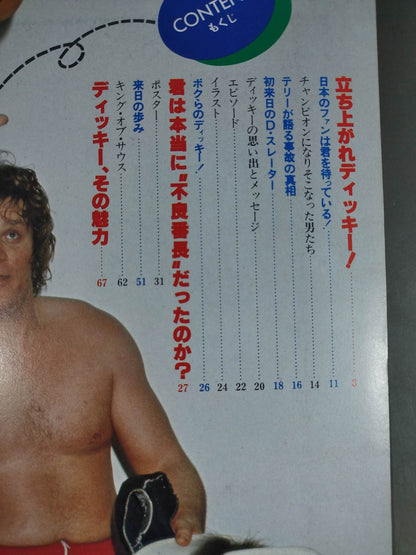 CONTE
もくじ
立ち上がれディッキー！ 3
日本のファンは君を待っている！ 11
チャンピオンになりそこなった男たち 14
テリーが語る事故の真相 16
初来日のD・スレーター 18
ディッキーの思い出とメッセージ 20
エピソード 22
イラスト 24
ボクらのディッキー！ 26
君は本当に“不良番長”だったのか？ 27
ポスター 31
来日の歩み 51
キング・オブ・サウス 62
ディッキー、その魅力 67